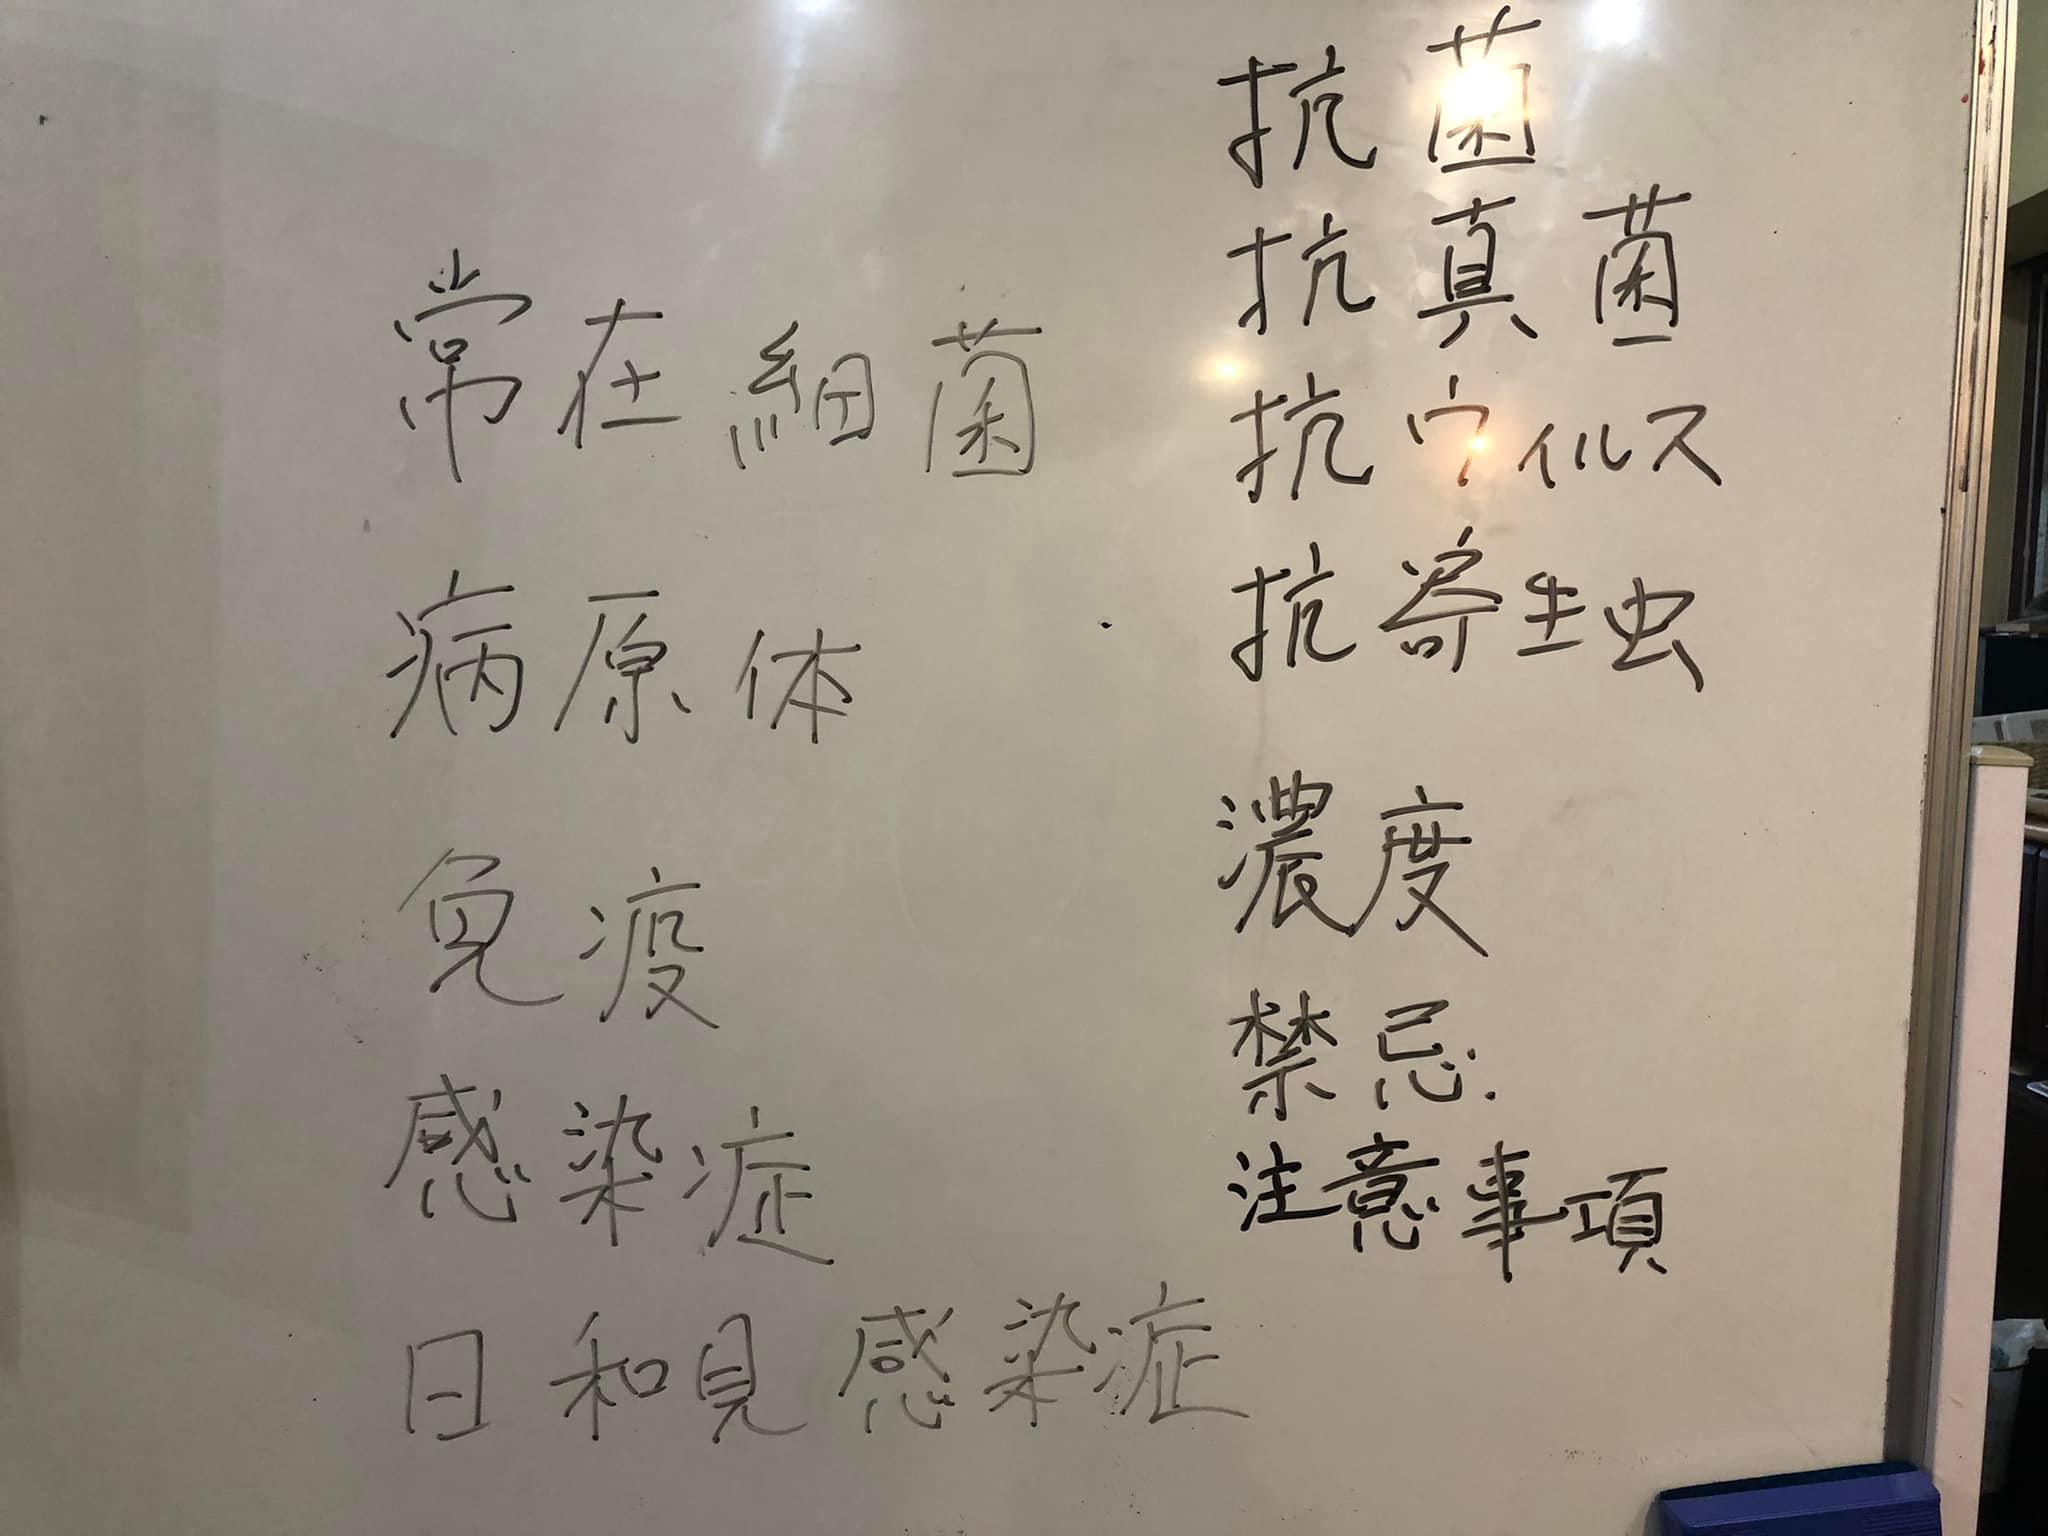 常在細菌
病原体
免疫
感染症
日和見感染症
抗菌
抗真菌
抗ウイルス
抗寄生虫
濃度
禁忌
注意事項